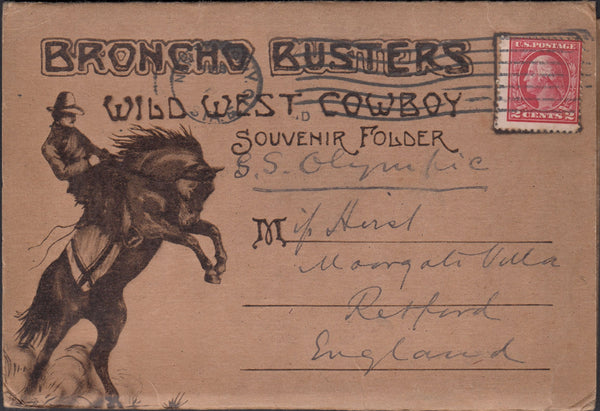 BRONCHO BUSTERS
WILD WEST COWBOY
SOUVENIR FOLDER
U.S. POSTAGE
2 CENTS 2
S.S. Olympic
Miss Hirst
Moorgate Villa
Retford
England